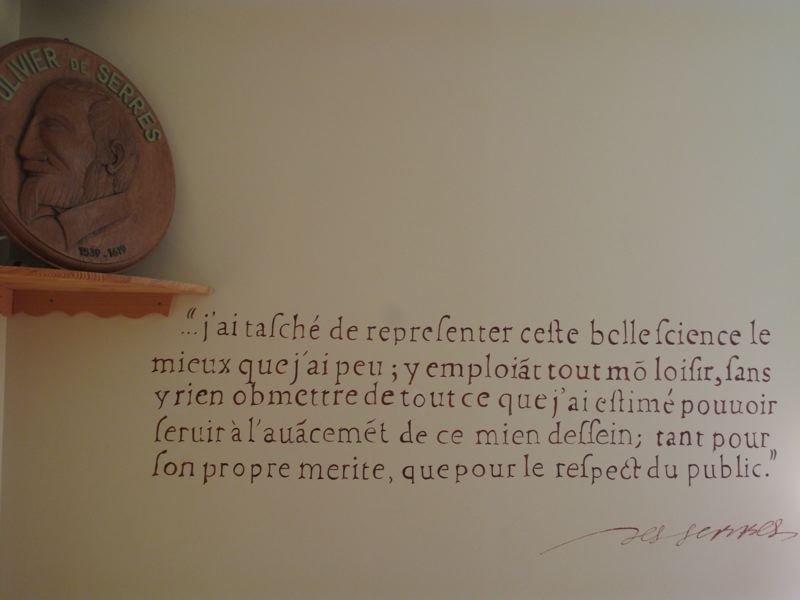 OLIVIER DE SERRES
1539-1619
“... j'ai taſché de repreſenter ceſte belle ſcience le
mieux que j'ai peu ; y emploiãt tout mõ loiſir, ſans
y rien obmettre de tout ce que j'ai eſtimé pouuoir
ſeruir à l'auãcemẽt de ce mien deſſein; tant pour
ſon propre merite, que pour le reſpect du public.”
des serres